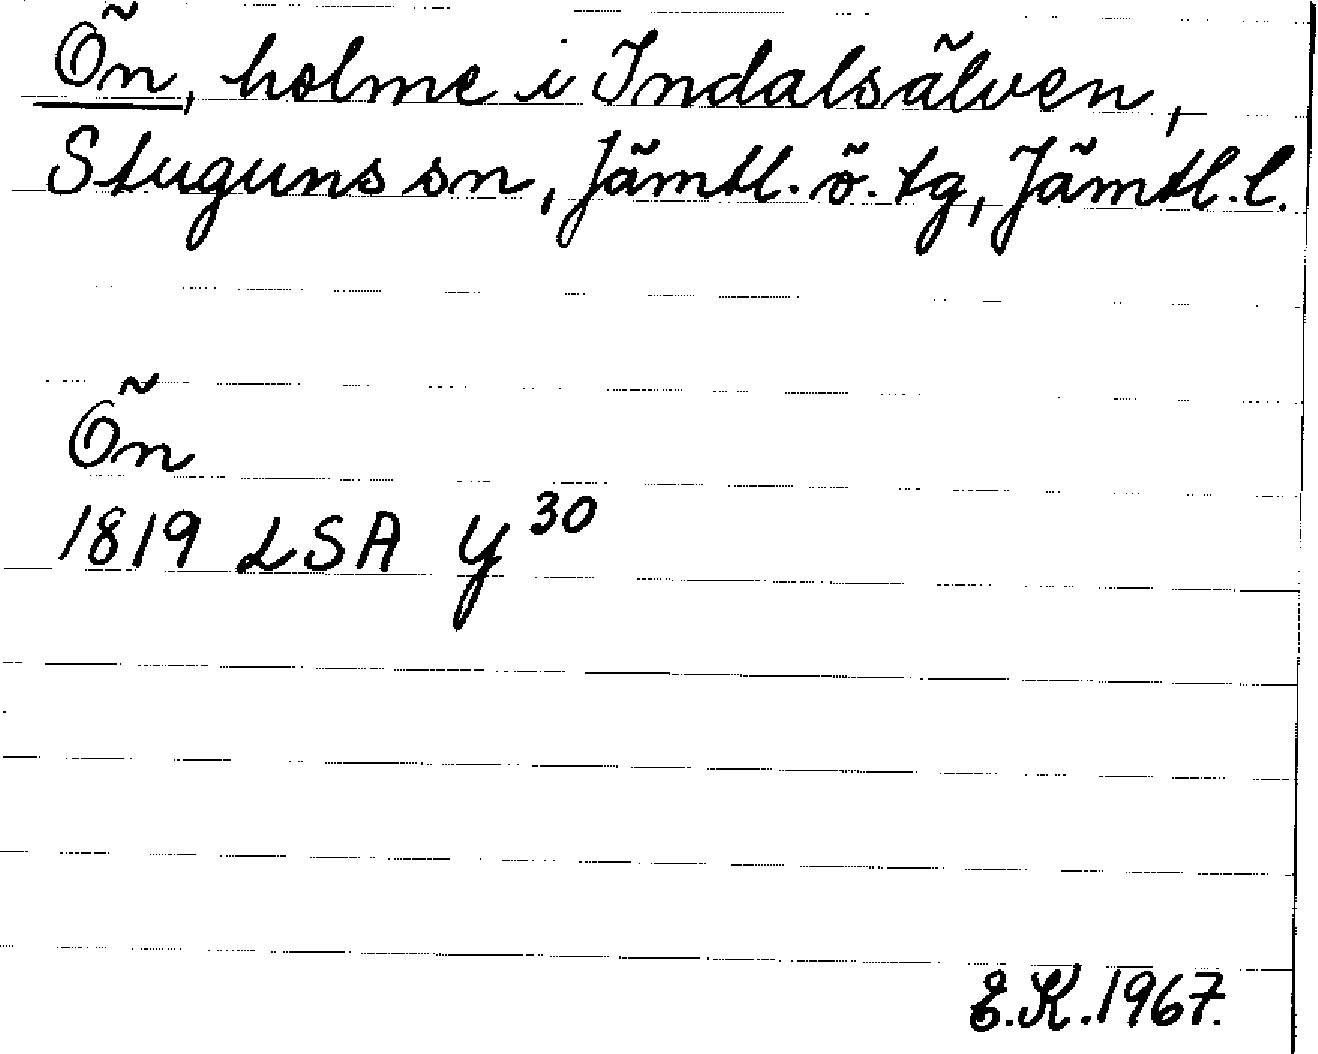 Ön, holme i Indalsälven,
Stuguns sn, Jämtl. ö. tg, Jämtl. l.
Ön
1819 LSA Y30
E.K. 1967.